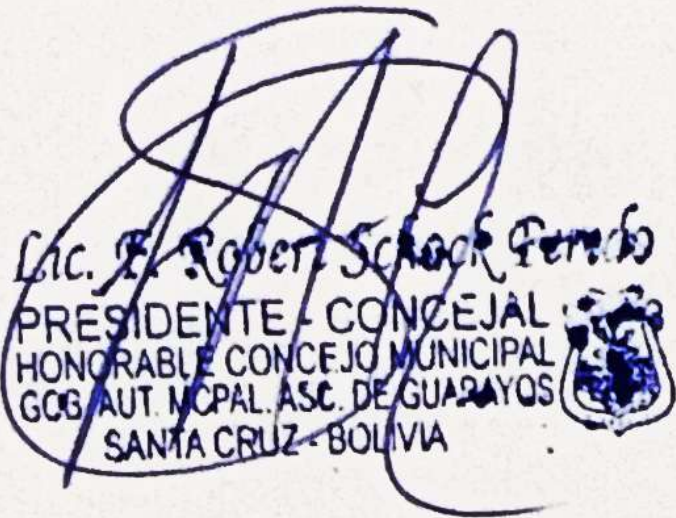 Lic. F. Robert Schock Peredo
PRESIDENTE - CONCEJAL
HONORABLE CONCEJO MUNICIPAL
GOB. AUT. MCPAL. ASC. DE GUARAYOS
SANTA CRUZ - BOLIVIA